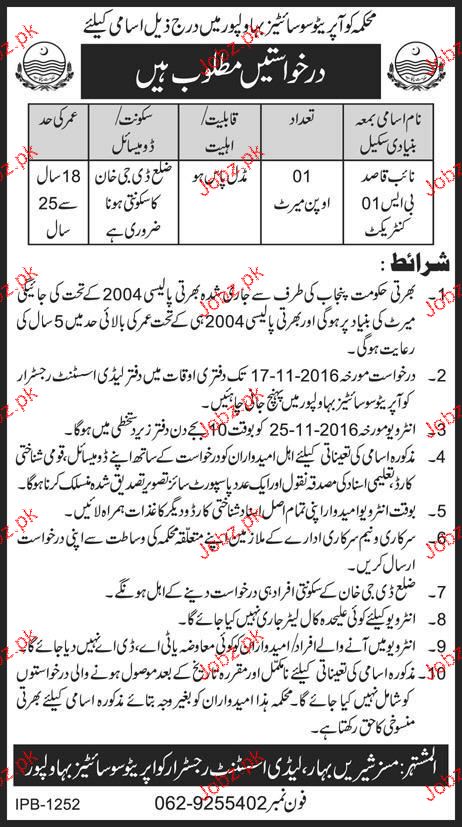 محکمہ کوآپریٹو سوسائٹیز بہاولپور میں درج ذیل اسامی کیلئے
درخواستیں مطلوب ہیں
نام اسامی بمعہ بنیادی سکیل
تعداد
قابلیت/ اہلیت
سکونت/ ڈومیسائل
عمر کی حد
نائب قاصد بی ایس 01 کنٹریکٹ
01 اوپن میرٹ
مڈل پاس ہو
ضلع ڈی جی خان کا سکونتی ہونا ضروری ہے
18 سال سے 25 سال
شرائط:
1۔ بھرتی حکومت پنجاب کی طرف سے جاری شدہ بھرتی پالیسی 2004 کے تحت کی جائیگی
میرٹ کی بنیاد پر ہوگی اور بھرتی پالیسی 2004 ہی کے تحت عمر کی بالائی حد میں 5 سال کی
رعایت ہوگی۔
2۔ درخواست مورخہ 17-11-2016 تک دفتری اوقات میں دفتر لیڈی اسسٹنٹ رجسٹرار
کوآپریٹو سوسائٹیز بہاولپور میں پہنچ جانی چاہئیں۔
3۔ انٹرویو مورخہ 25-11-2016 کو بوقت 10 بجے دن دفتر زیر دستخطی میں ہوگا۔
4۔ مذکورہ اسامی کی تعیناتی کیلئے اہل امیدواران کو درخواست کے ساتھ اپنے ڈومیسائل، قومی شناختی
کارڈ، تعلیمی اسناد کی مصدقہ نقول اور ایک عدد پاسپورٹ سائز تصویر تصدیق شدہ منسلک کرنا ہوگا۔
5۔ بوقت انٹرویو امیدوار اپنی تمام اصل اسناد شناختی کارڈ و دیگر کاغذات ہمراہ لائیں۔
6۔ سرکاری و نیم سرکاری ادارے کے ملازمین اپنے متعلقہ محکمہ کی وساطت سے اپنی درخواست
ارسال کریں۔
7۔ ضلع ڈی جی خان کے سکونتی افراد ہی درخواست دینے کے اہل ہونگے۔
8۔ انٹرویو کیلئے کوئی علیحدہ کال لیٹر جاری نہیں کیا جائے گا۔
9۔ انٹرویو میں آنے والے افراد/ امیدواران کو کوئی معاوضہ یا ٹی اے، ڈی اے نہیں دیا جائے گا۔
10۔ مذکورہ اسامی کی تعیناتی کیلئے نامکمل اور مقررہ تاریخ کے بعد موصول ہونے والی درخواستوں
کو شامل نہیں کیا جائے گا۔ محکمہ ہذا امیدواران کو بغیر وجہ بتائے مذکورہ اسامی کیلئے بھرتی
منسوخی کا حق رکھتا ہے۔
المشتہر: مسز شیریں بہار، لیڈی اسسٹنٹ رجسٹرار کوآپریٹو سوسائٹیز بہاولپور
فون نمبر 062-9255402
IPB-1252
Jobz.pk